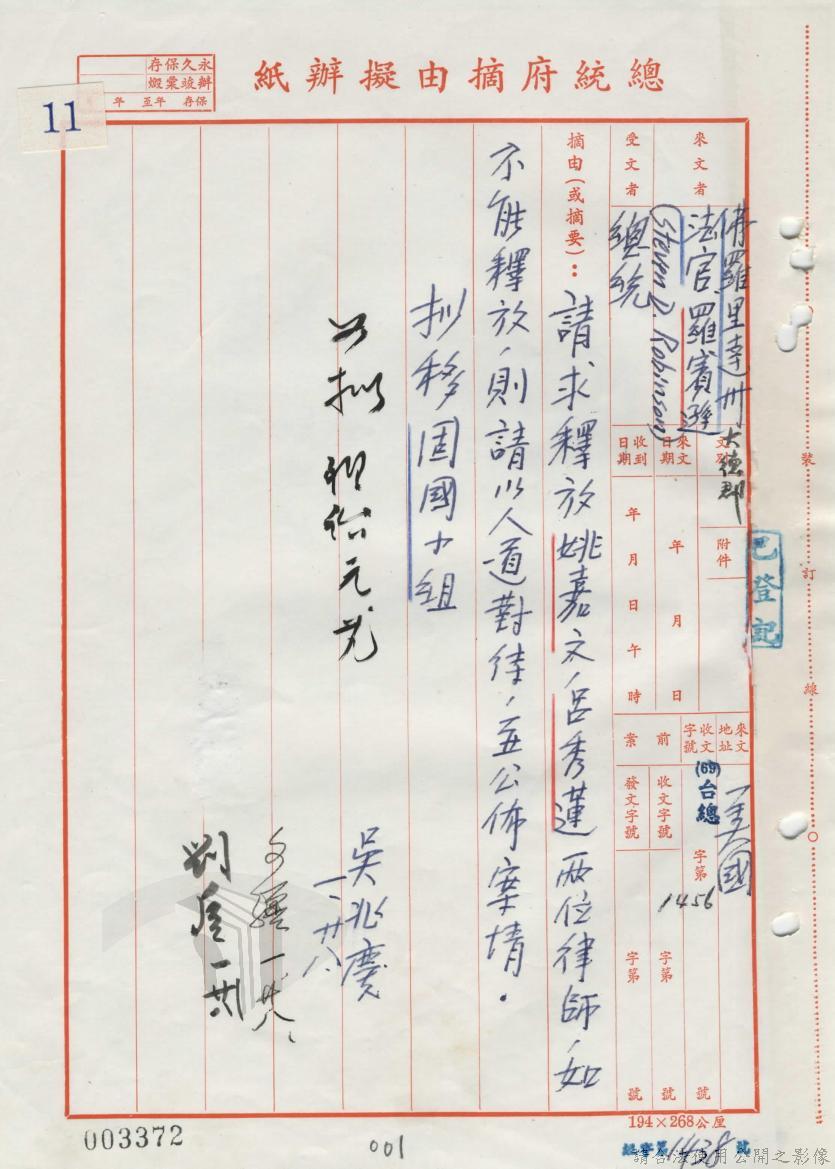 總統府摘由擬辦紙
永久保存
辦竣彙燬
保存 年至 年
11
來文者
佛羅里達州大德郡
法官羅賓遜
(Steven D. Robinson)
受文者
總統
文別
附件
來文日期
年 月 日
收到日期
年 月 日 午 時
來文地址
美國
收文字號
(69)台總
字第
1456
號
前案
收文字號
字第
號
發文字號
字第
號
摘由(或摘要):
請求釋放姚嘉文、呂秀蓮兩位律師、如
不能釋放、則請以人道對待、並公佈案情.
擬移固國小組
如擬
吳兆慶
一、廿八、
劉
已登記
裝
訂
線
194×268公厘
003372
001
1438號
請合法使用公開之影像